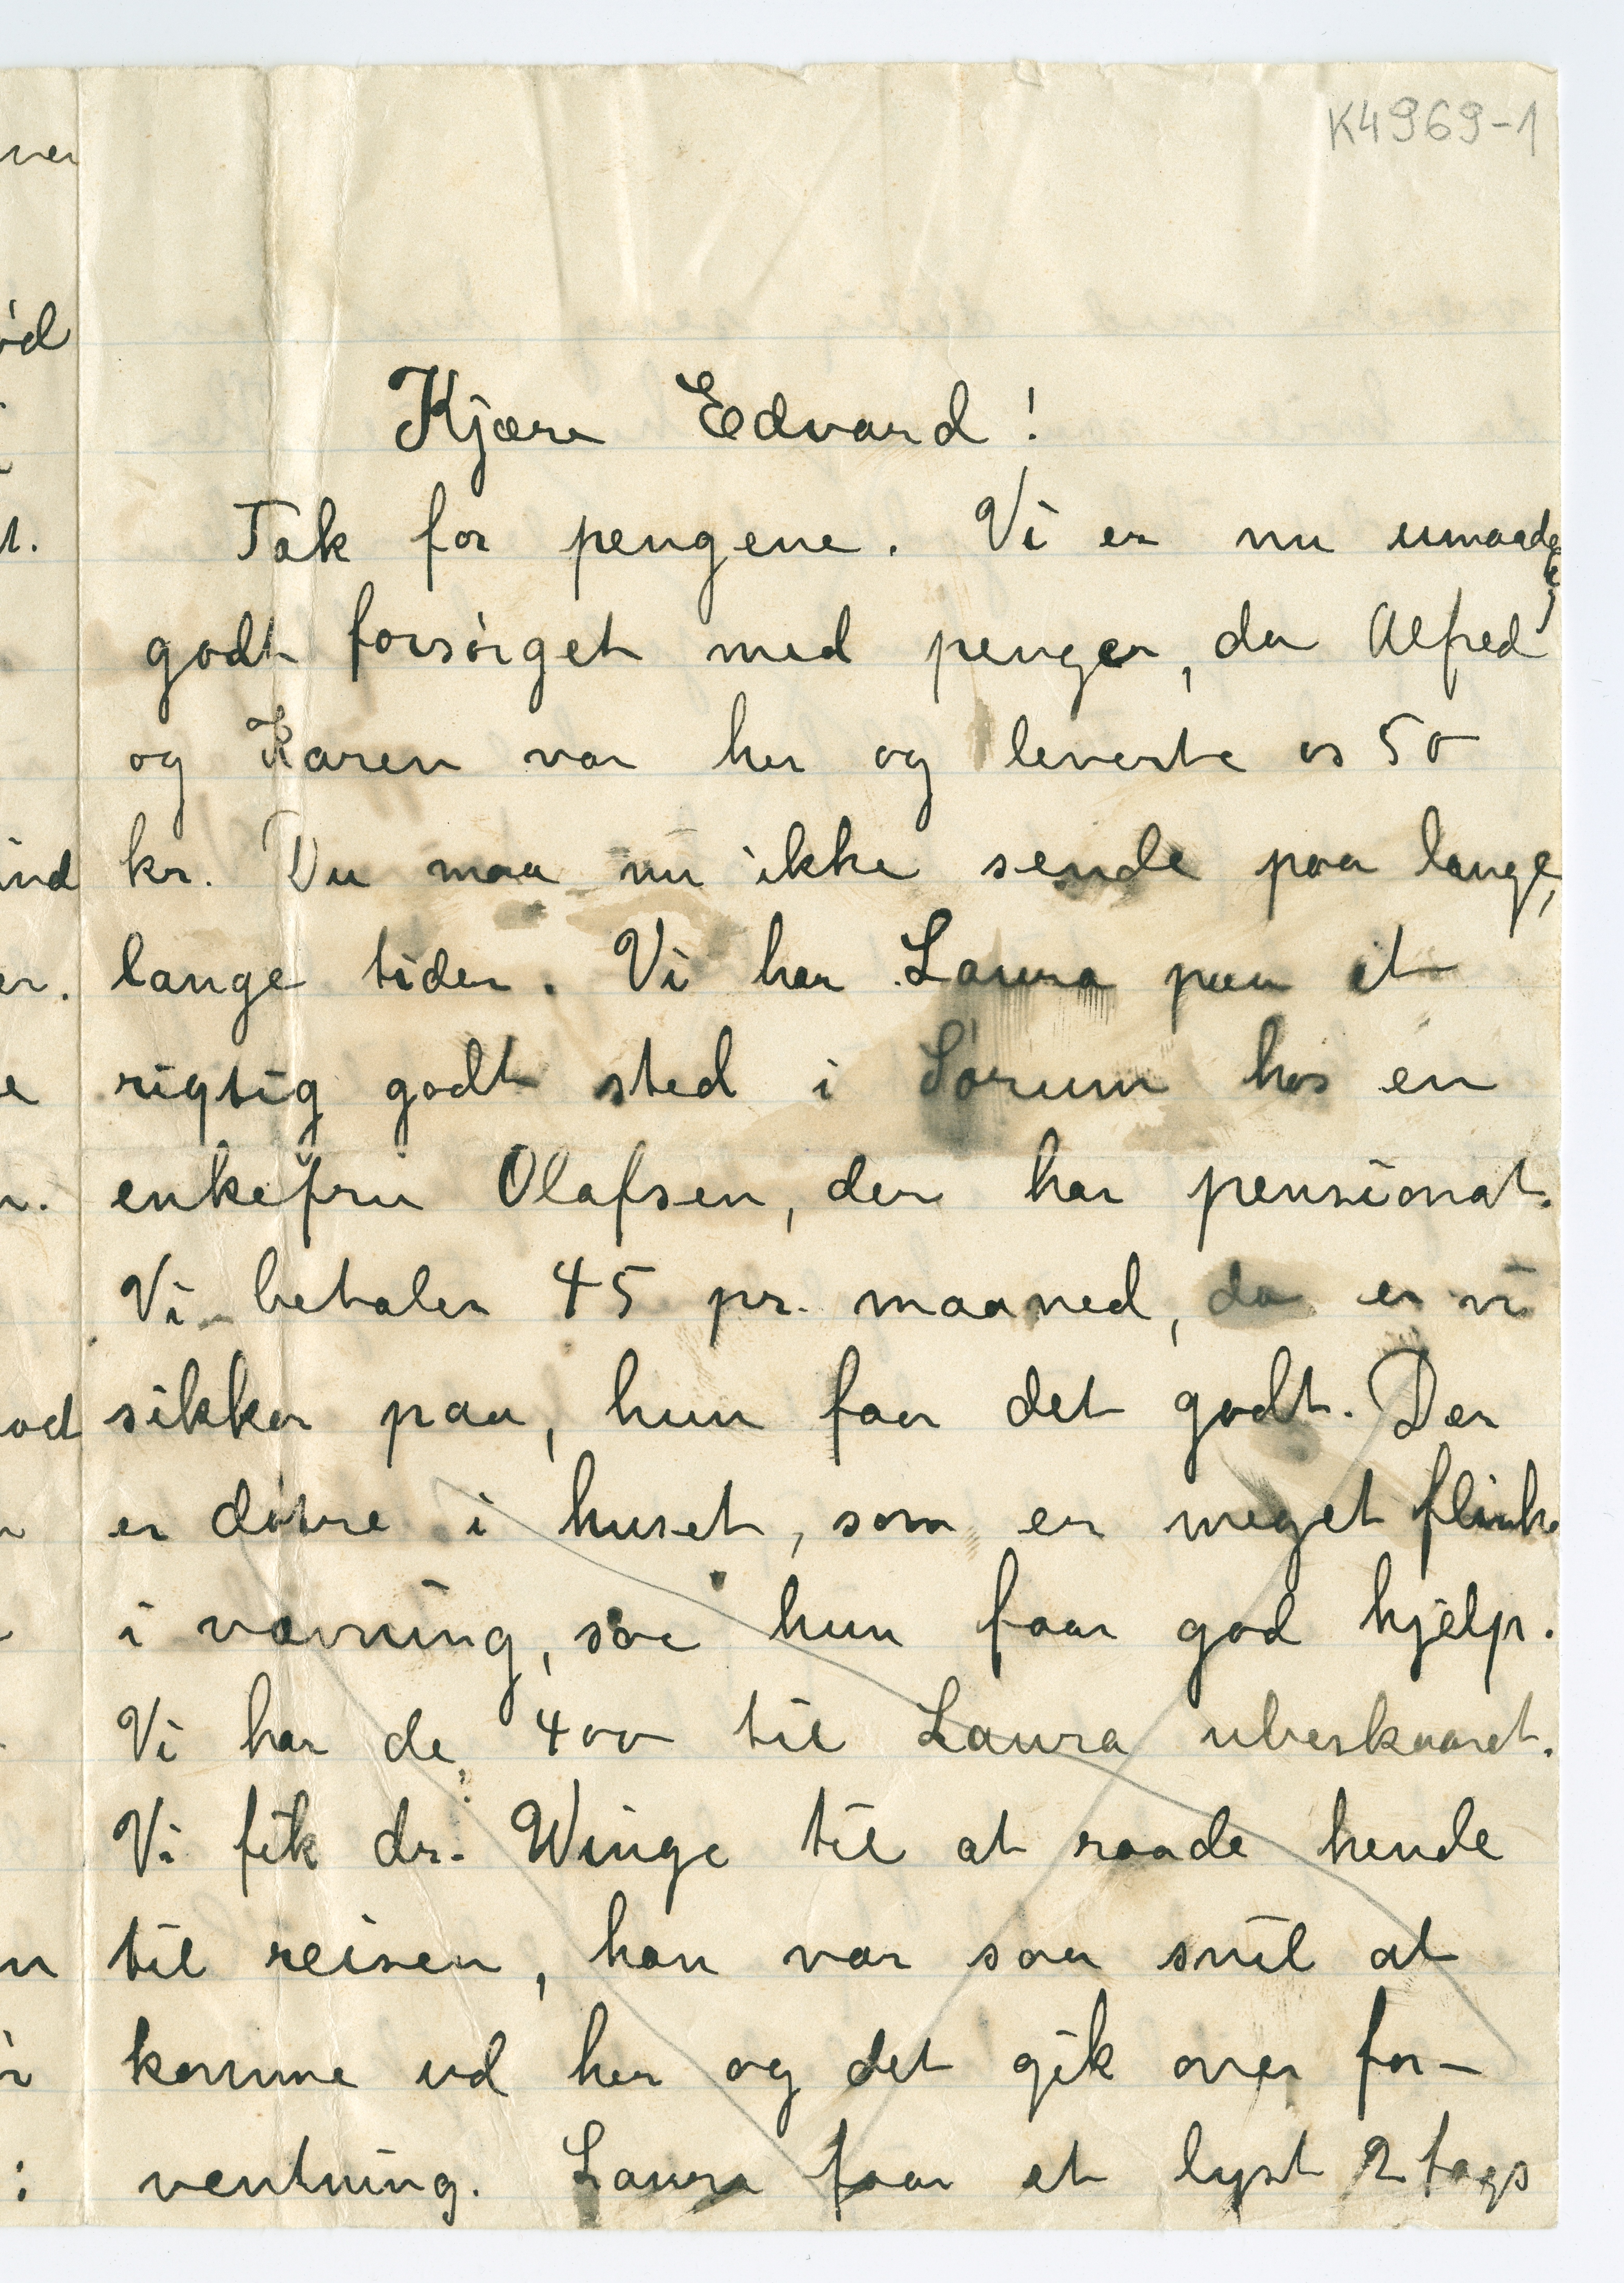 K4969-1
Kjære Edvard!
Tak for pengene. Vi er nu umaadelig
godt forsørget med penger, da Alfred
og Karen var her og leverte os 50
kr. Du maa nu ikke sende paa lange,
lange tider. Vi har Laura paa et
rigtig godt sted i Sørum hos en
enkefru Olafsen, der har pensionat.
Vi betaler 45 pr. maaned, da er vi
sikker paa, hun faar det godt. Der
er døtre i huset, som er meget flinke
i vævning, saa hun faar god hjelp.
Vi har de 400 til Laura ubeskaaret.
Vi fik dr. Winge til at raade hende
til reisen, han var saa snil at
komme ud her og det gik over for-
ventning. Laura faar et lyst 2 fags